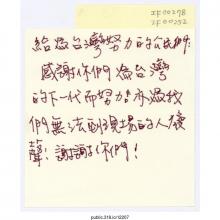 IF00278
IF00252
給為台灣努力的伙伴們:
感謝你們為台灣
的下一代而努力!亦為我
們無法到現場的人發
聲!謝謝你們!
public.318.io/12207